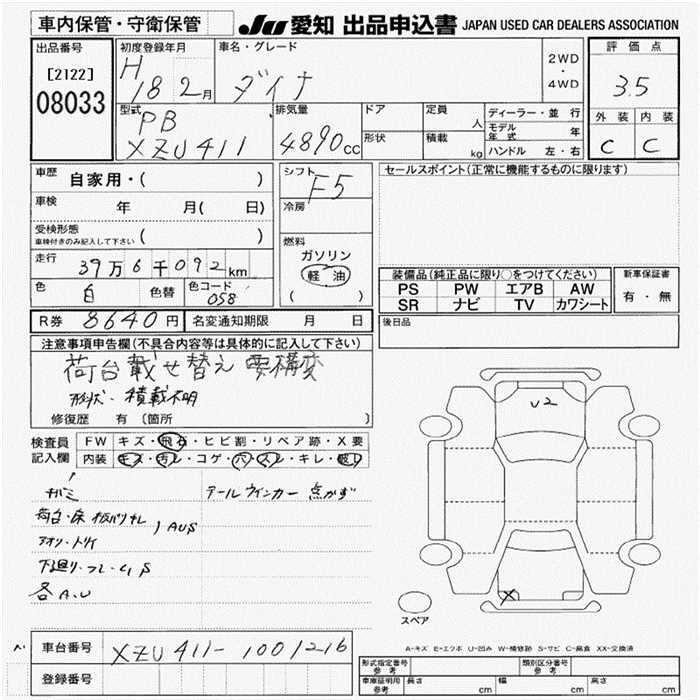 車内保管・守衛保管
JU 愛知 出品申込書 JAPAN USED CAR DEALERS ASSOCIATION
出品番号
[2122]
08033
初度登録年月
H 18 2月
車名・グレード
ダイナ
2WD
・
4WD
評価点
3.5
外装 内装
C C
型式
PB
XZU411
排気量
4890cc
ドア
形状
定員 人
積載 kg
ディーラー・並行
モデル年式 年
ハンドル 左・右
車歴 自家用・( )
車検 年 月( 日)
受検形態
車検付きのみ記入して下さい ( )
走行 39万6千092km
色 白 色替 色コード 058
シフト F5
冷房
燃料
ガソリン
軽油
( )
セールスポイント(正常に機能するものに限ります)
装備品(純正品に限り○をつけてください)
PS PW エアB AW
SR ナビ TV カワシート
新車保証書
有・無
後日品
R券 8640円 名変通知期限 月 日
注意事項申告欄(不具合内容等は具体的に記入して下さい)
荷台載せ替え 要構変
形状・積載不明
修復歴 有 〔箇所 〕
検査員記入欄
FW キズ・飛石・ヒビ割・リペア跡・X要
内装 キズ・汚レ・コゲ・穴・スレ・キレ・破レ
テールウインカー 点かず
荷台・床
AUS
アオリ・トリイ
下廻り・フレームS
各A.U
U2
X
スペア
A-キズ E-エクボ U-凹み W-補修跡 S-サビ C-腐食 XX-交換済
車台番号 XZU411-1001216
登録番号
形式指定番号 参考
類別区分番号 参考
車庫証明用 参考 長さ cm 幅 cm 高さ cm